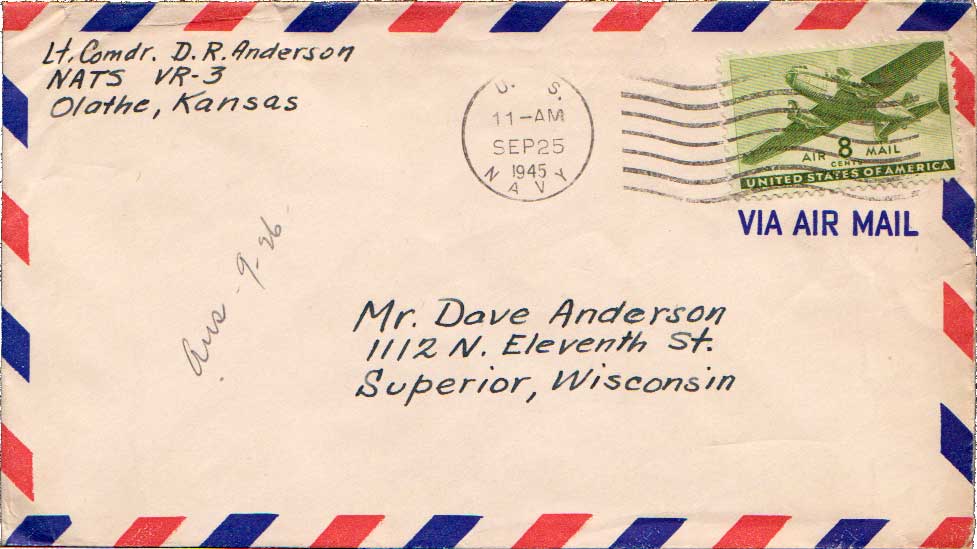 Lt. Comdr. D. R. Anderson
NATS VR-3
Olathe, Kansas
U. S.
11-AM
SEP 25
1945
NAVY
AIR 8 MAIL
CENTS
UNITED STATES OF AMERICA
VIA AIR MAIL
Ans - 9-26
Mr. Dave Anderson
1112 N. Eleventh St.
Superior, Wisconsin